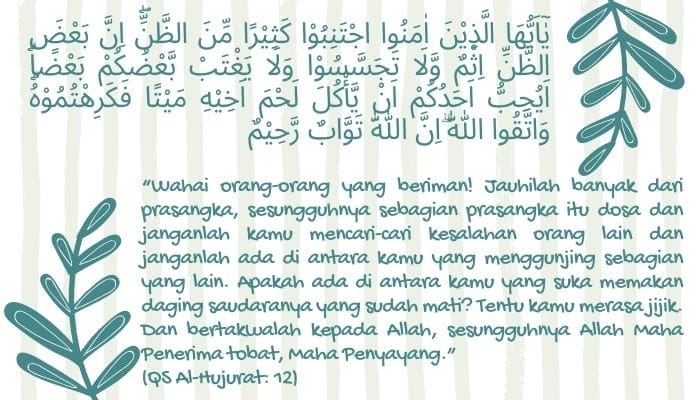 يٰٓاَيُّهَا الَّذِيْنَ اٰمَنُوا اجْتَنِبُوْا كَثِيْرًا مِّنَ الظَّنِّۖ اِنَّ بَعْضَ
الظَّنِّ اِثْمٌ وَّلَا تَجَسَّسُوْا وَلَا يَغْتَبْ بَّعْضُكُمْ بَعْضًاۗ
اَيُحِبُّ اَحَدُكُمْ اَنْ يَّأْكُلَ لَحْمَ اَخِيْهِ مَيْتًا فَكَرِهْتُمُوْهُۗ
وَاتَّقُوا اللّٰهَ ۗاِنَّ اللّٰهَ تَوَّابٌ رَّحِيْمٌ
"Wahai orang-orang yang beriman! Jauhilah banyak dari
prasangka, sesungguhnya sebagian prasangka itu dosa dan
janganlah kamu mencari-cari kesalahan orang lain dan
janganlah ada di antara kamu yang menggunjing sebagian
yang lain. Apakah ada di antara kamu yang suka memakan
daging saudaranya yang sudah mati? Tentu kamu merasa jijik.
Dan bertakwalah kepada Allah, sesungguhnya Allah Maha
Penerima tobat, Maha Penyayang."
(QS Al-Hujurat: 12)